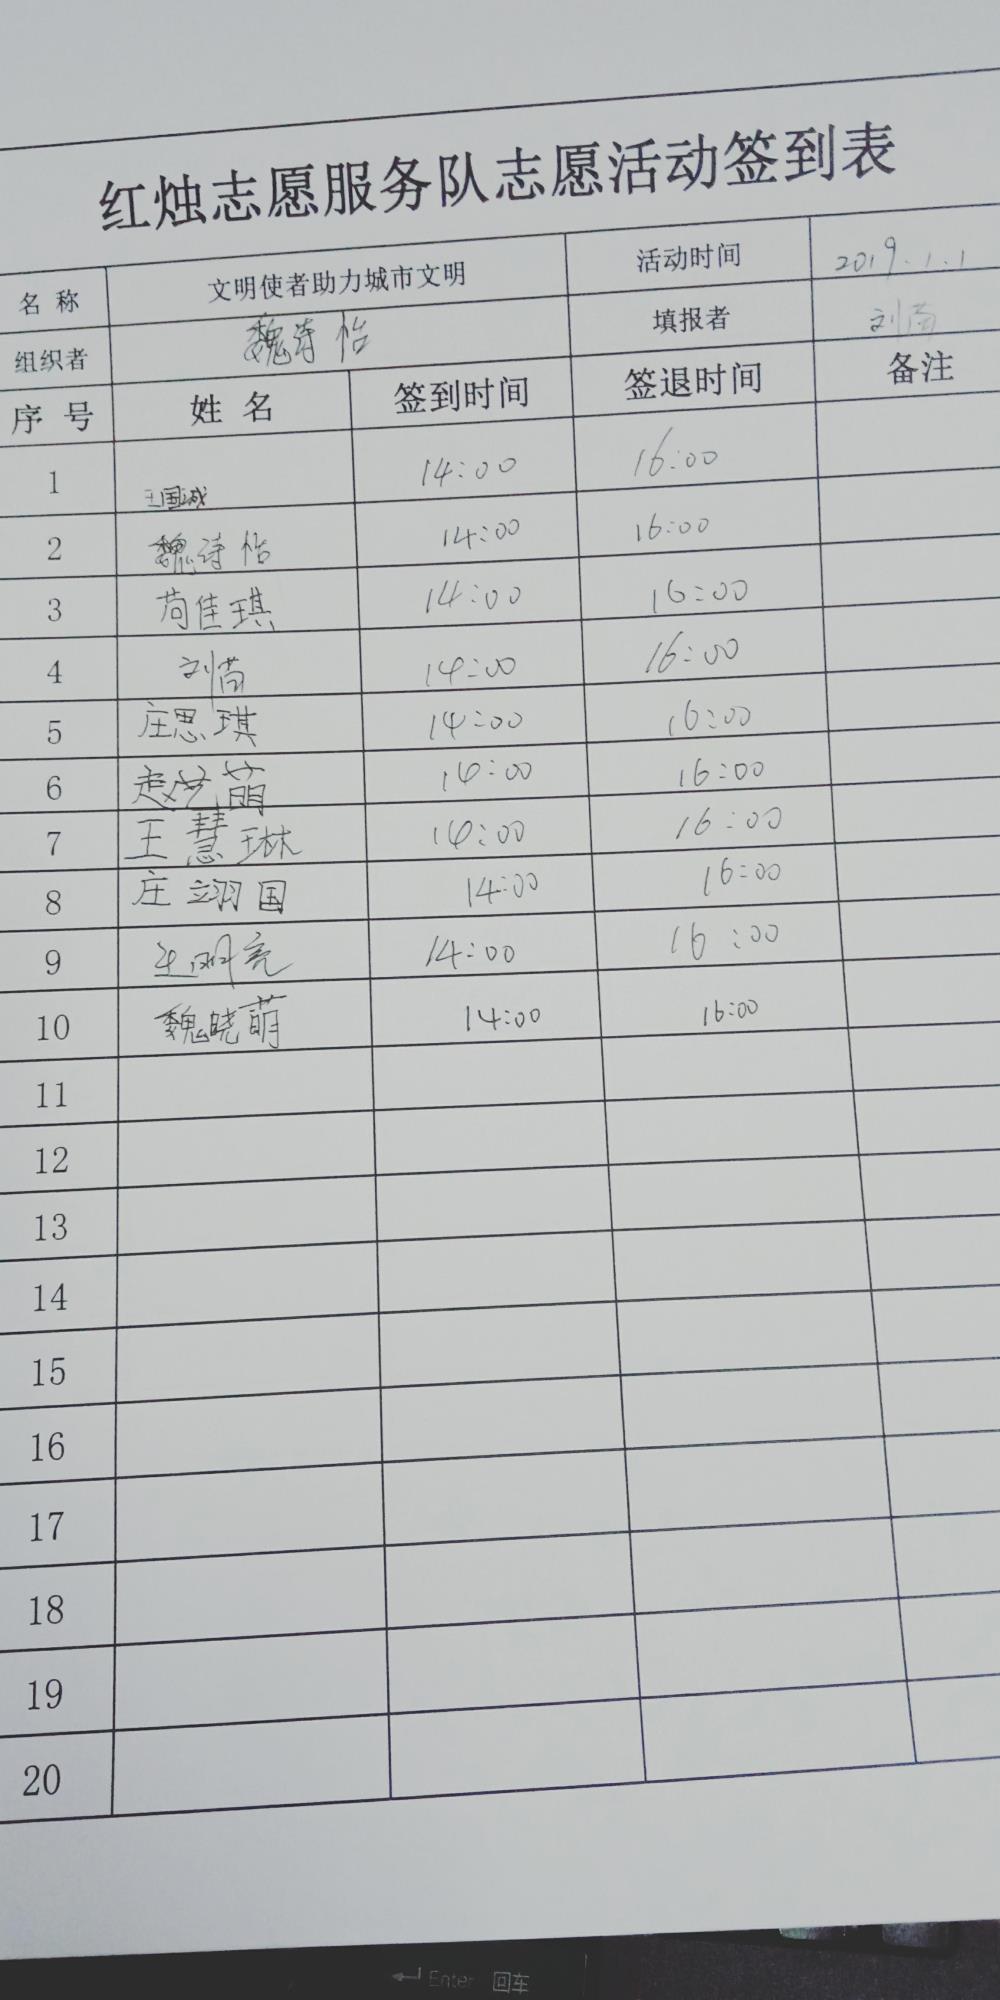 红烛志愿服务队志愿活动签到表
名 称 文明使者助力城市文明 活动时间 2019.1.1
组织者 魏诗怡 填报者 刘苗
序 号 姓 名 签到时间 签退时间 备注
1 王国斌 14:00 16:00
2 魏诗怡 14:00 16:00
3 苟佳琪 14:00 16:00
4 刘苗 14:00 16:00
5 庄思琪 14:00 16:00
6 赵艺萌 14:00 16:00
7 王慧琳 14:00 16:00
8 庄翊国 14:00 16:00
9 王明亮 14:00 16:00
10 魏晓萌 14:00 16:00
11
12
13
14
15
16
17
18
19
20
Enter 回车